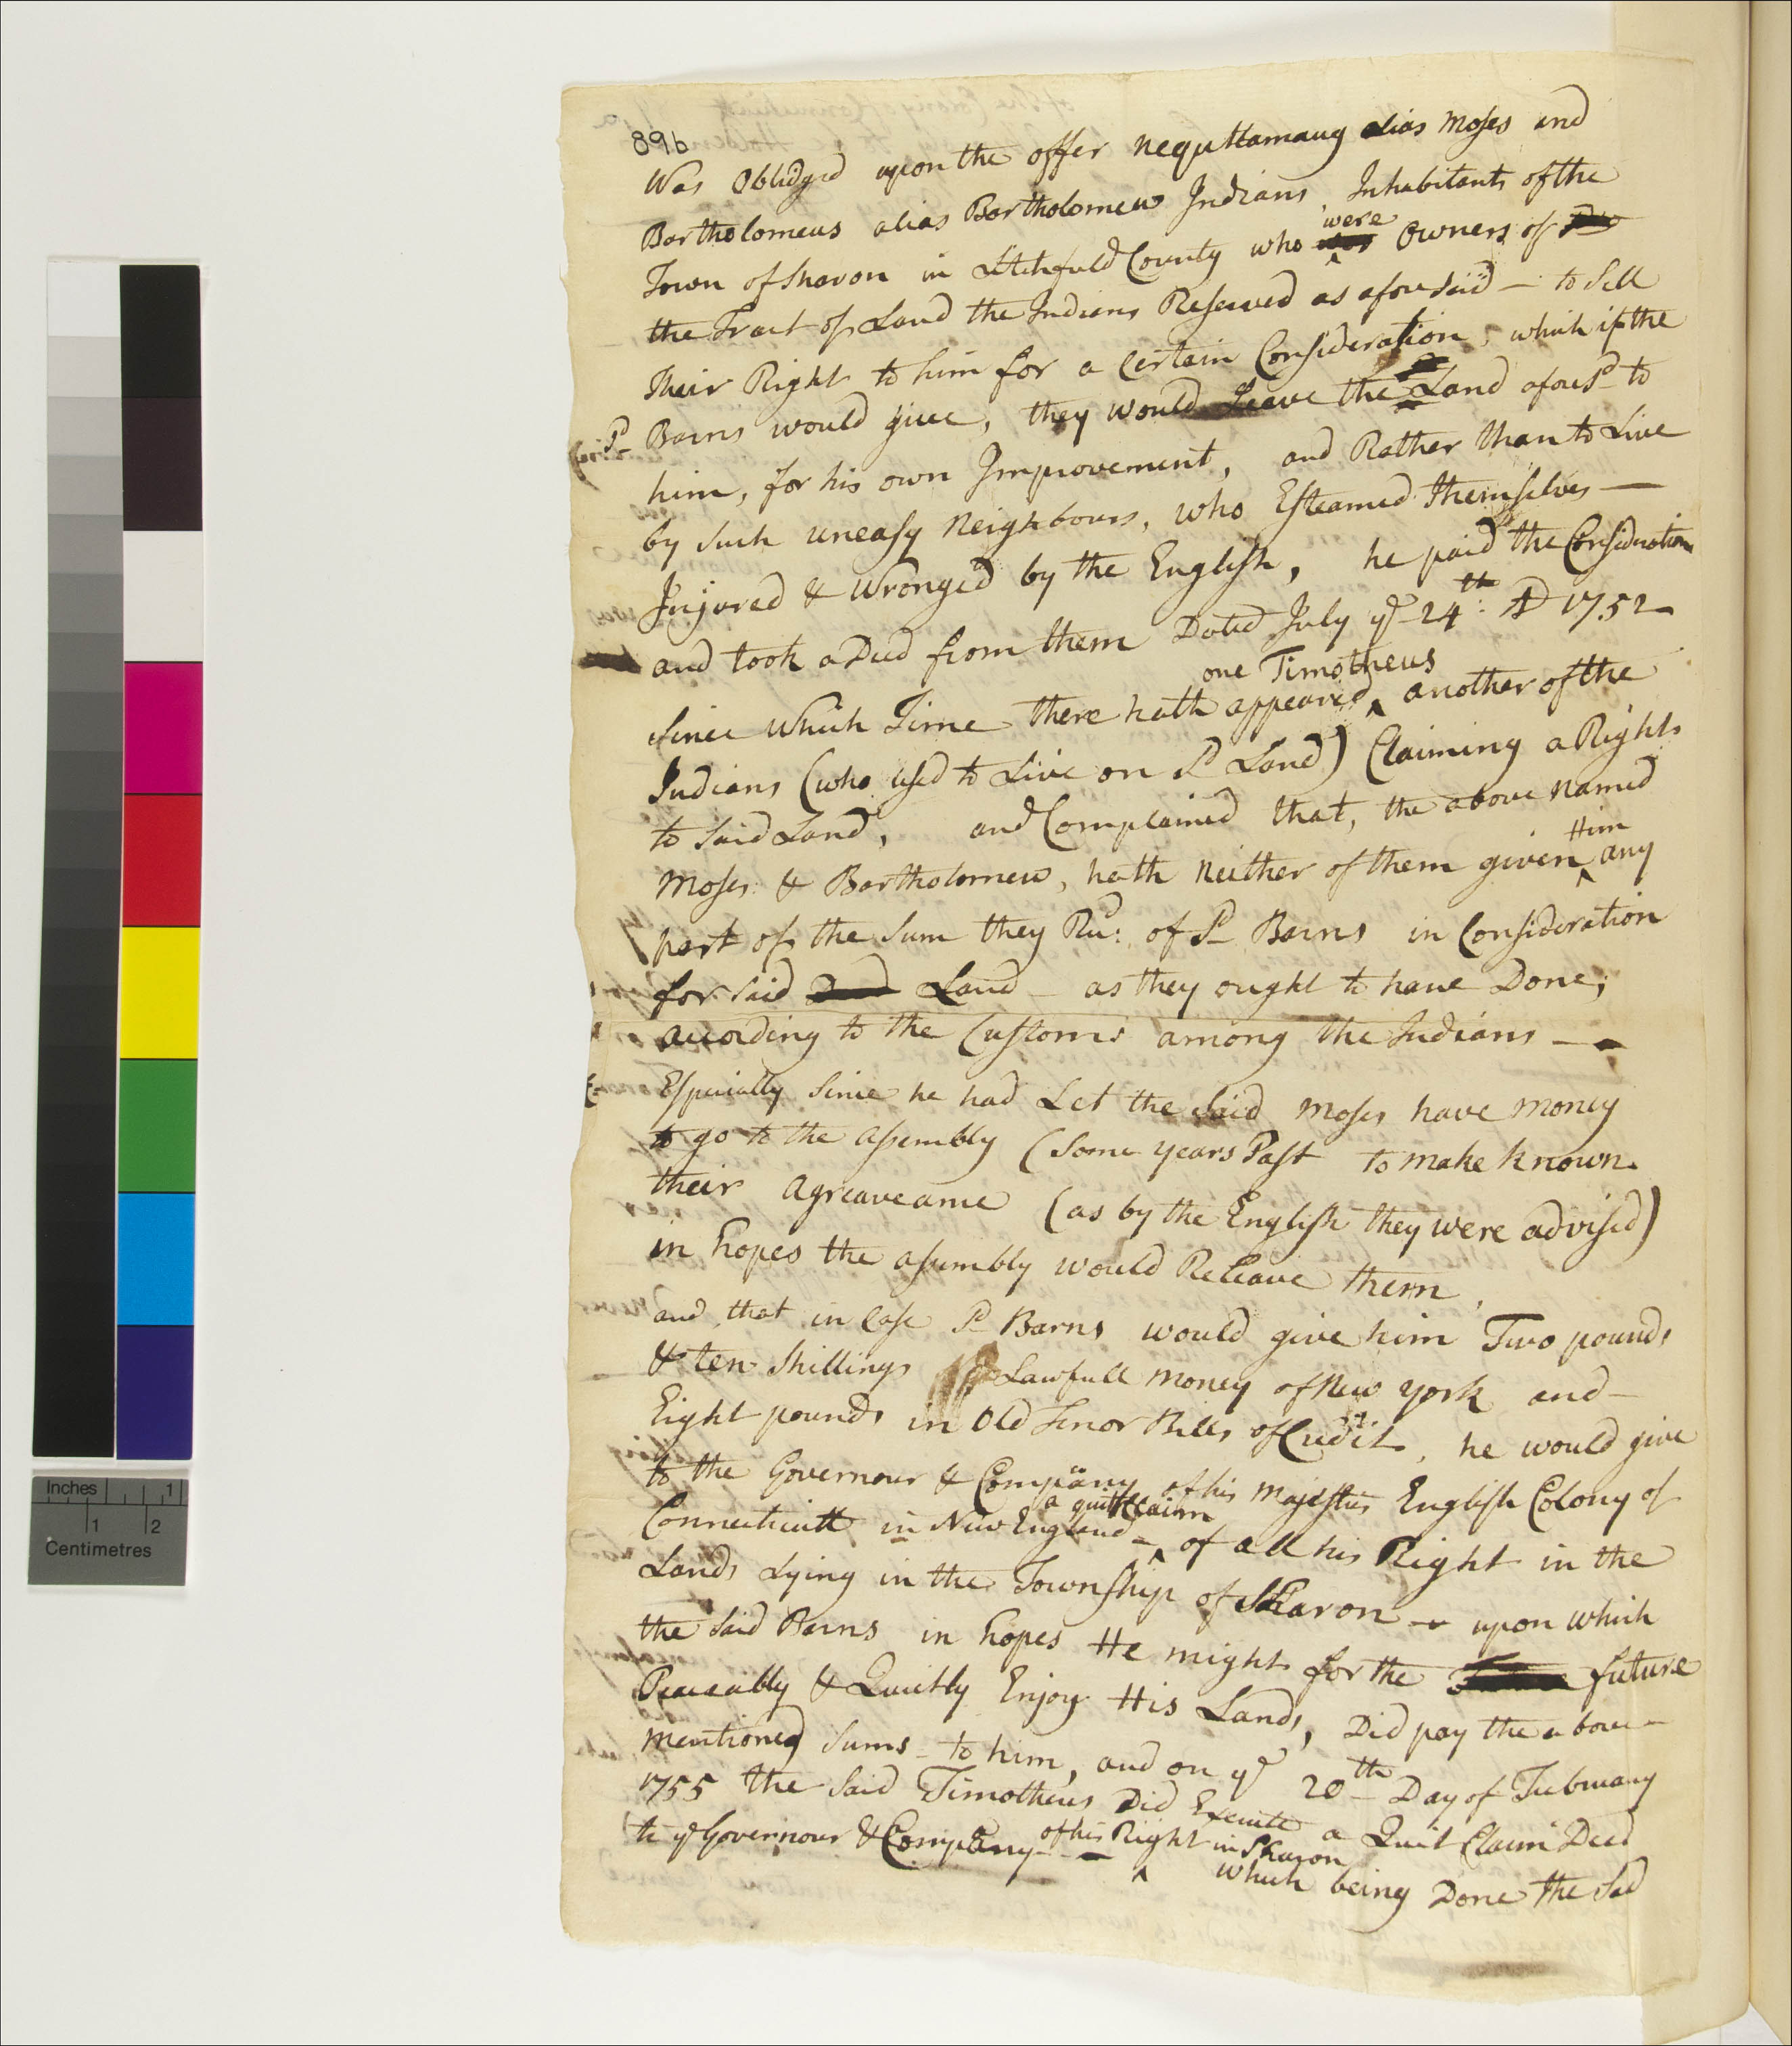 89b
Was Oblidged upon the offer nequttamaug alias Moses and
Bartholomeus alias Bartholomew Indians Inhabitants of the
Town of Sharon in Litchfield County who were Owners of
the Tract of Land the Indians Reserved as aforesaid — to Sell
Their Right to him for a Certain Consideration, which if the
Sd Barns would give, they would Leave the Land aforesd to
him, for his own Improvement, and Rather than to Live
by such uneasy Neighbours, who Esteamed themselves —
Injured & Wronged by the English, he paid the Consideration
and took a Deed from them Dated July ye 24th: AD 1752
one Timotheus
Since Which Time there hath appeared ^ another of the
Indians (who used to Live on Sd Land) Claiming a Right
to Said Land, and Complained that, the above named
Him
Moses & Bartholomew, hath Neither of them given ^ any
part of the Sum they Recd: of Sd Barns in Consideration
for said Land — as they ought to have Done;
according to the Customs among the Indians —
Especially Since he had Let the Said Moses have money
to go to the Assembly (Some years Past to make known
their Agreaveance (as by the English they were advised)
in hopes the assembly would Releave them,
and that in Case Sd Barns would give him Two pounds
& ten Shillings Lawfull money of New York and —
Eight pounds in Old Tenor Bills of Credit, he would give
to the Governour & Company of his Majesties English Colony of
a quittclaim
Connecticutt in New England — ^ of all his Right in the
Lands Lying in the Township of Sharon — upon which
the Said Barns in hopes He might for the future
Peaceably & Quietly Enjoy His Lands, Did pay the above —
mentioned Sums to him, and on ye 20th Day of Febuary
1755 the Said Timotheus Did Execute a Quit Claim Deed
of his Right in Sharon
to ye Governour & Company — ^ which being Done the Sad
Inches 1
1 2
Centimetres